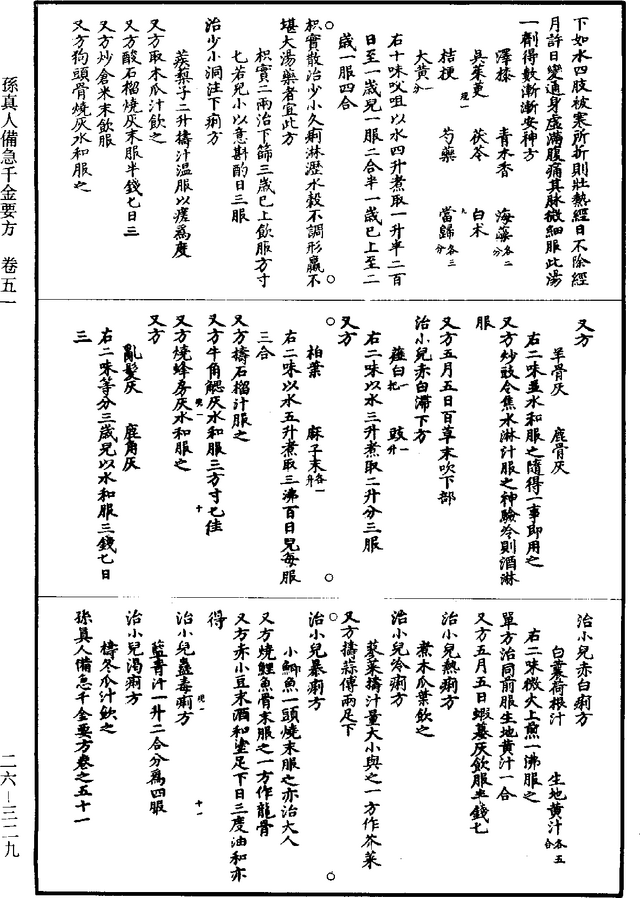 下如水四肢被寒所折則壯熱經日不除經
月許日變通身虛滿腹痛其脉微細服此湯
一劑得數漸漸安神方
澤榛　青木香　海藻各二分
吳茱萸　茯苓　白术
桔梗　芍藥　當歸各三分
大黃一分
右十味㕮咀以水四升煮取一升半二百
日至一歲兒一服二合半一歲已上至二
歲一服四合
枳實散治少小久痢淋瀝水穀不調形羸不
堪大湯藥者宜此方
枳實二兩治下篩三歲已上飲服方寸
匕若兒小以意斟酌日三服
治少小洞注下痢方
蒺梨子二升擣汁溫服以瘥爲度
又方取木瓜汁飲之
又方酸石榴燒灰末服半錢匕日三
又方炒倉米末飲服
又方狗頭骨燒灰水和服之
又方
羊骨灰　鹿骨灰
右二味並水和服之隨得一事即用之
又方炒豉令焦水淋汁服之神驗冷則酒淋
服
又方五月五日百草末吹下部
治小兒赤白滯下方
薤白一把　豉一升
右二味以水三升煮取二升分三服
又方
柏葉　麻子末各一升
右二味以水五升煮取三沸百日兒每服
三合
又方擣石榴汁服之
又方牛角䚡灰水和服三方寸匕佳
又方燒蜂房灰水和服之
又方
亂髮灰　鹿角灰
右二味等分三歲兒以水和服三錢匕日
三
治小兒赤白痢方
白蘘荷根汁　生地黃汁各五合
右二味微火上煎一沸服之
單方治同前服生地黃汁一合
又方五月五日蝦蟇灰飲服半錢匕
治小兒熱痢方
煮木瓜葉飲之
治小兒冷痢方
蓼菜擣汁量大小與之一方作芥菜
又方擣蒜傅兩足下
治小兒暴痢方
小鯽魚一頭燒末服之亦治大人
又方燒鯉魚骨末服之一方作龍骨
又方赤小豆末酒和塗足下日三度油和亦
得
治小兒蠱毒痢方
藍青汁一升二合分爲四服
治小兒渴痢方
擣冬瓜汁飲之
孫真人備急千金要方卷之五十一
孫真人備急千金要方　卷五一
二六—三二九